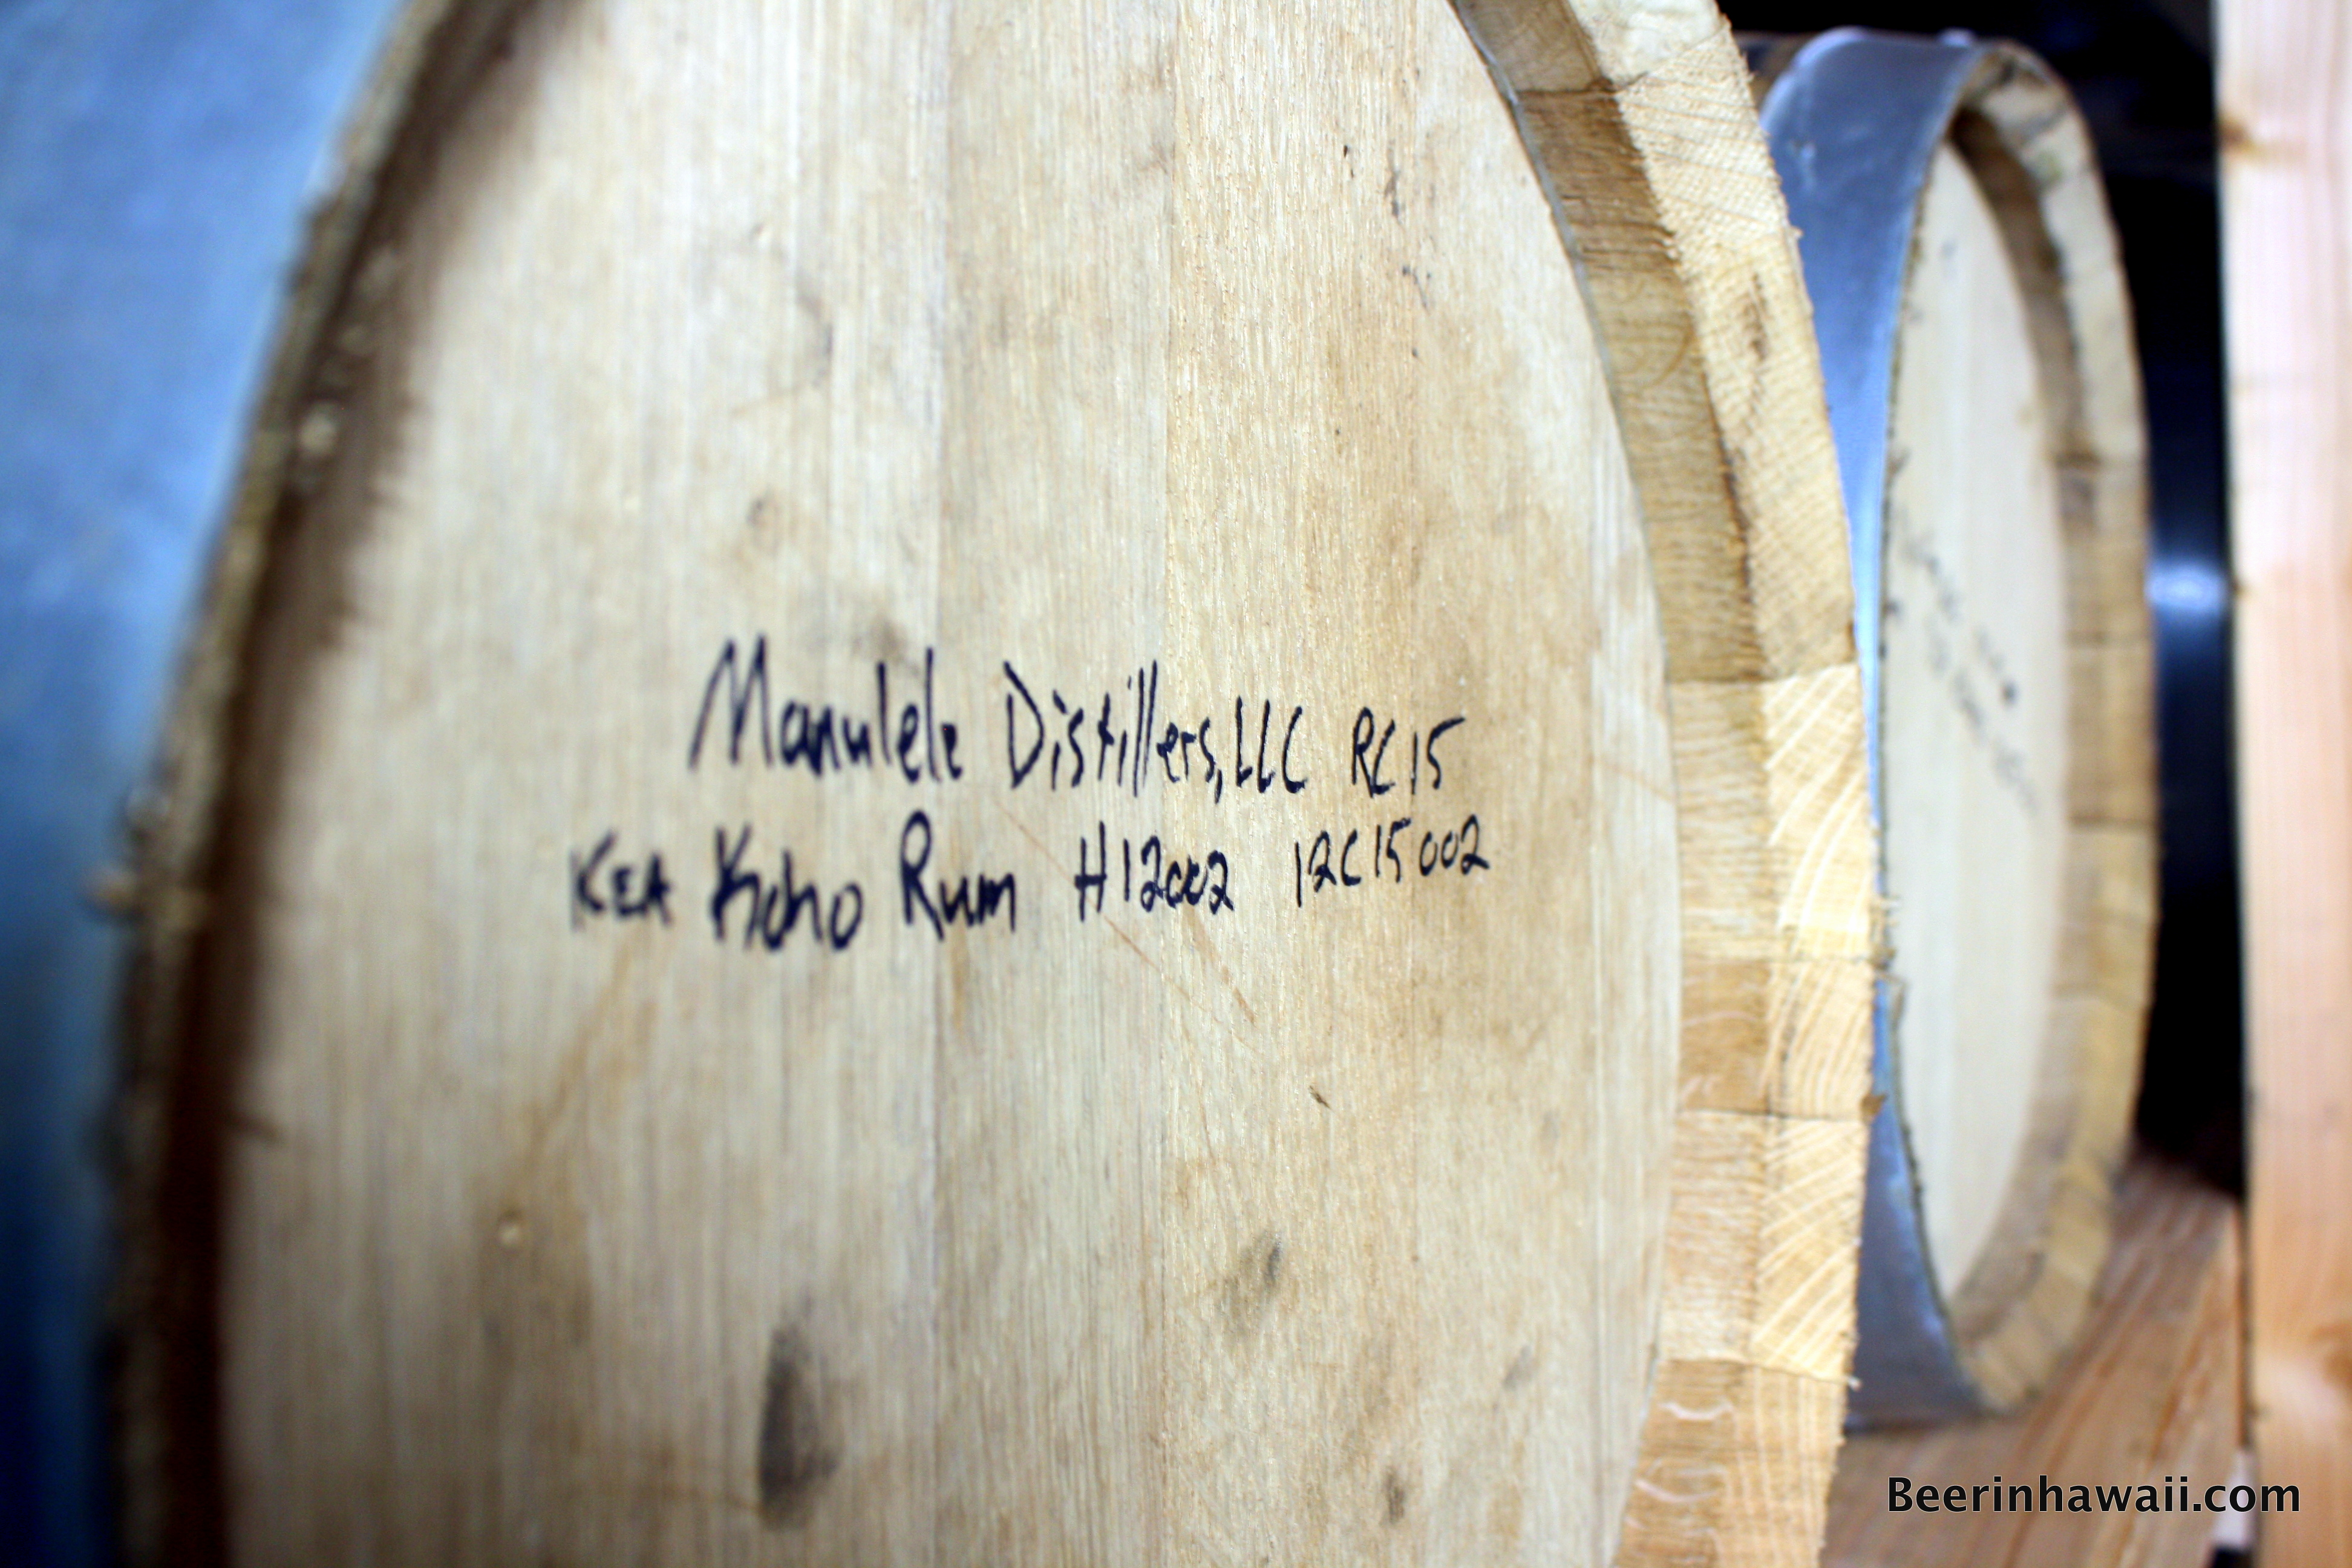 Manulele Distillers, LLC RC15
KEA Koho Rum H12002 12C15002
Beerinhawaii.com